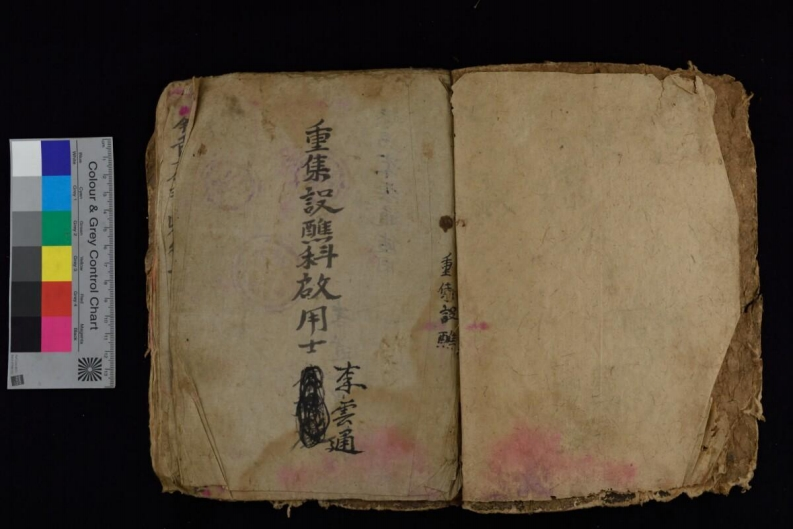 重集設醮科啟用士
李雲通
重集設醮
Colour & Grey Control Chart